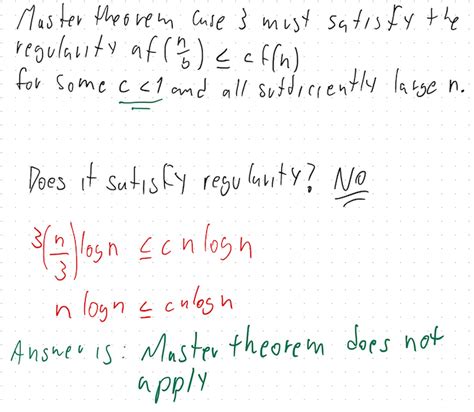 Master theorem case 3 must satisfy the
regularity af(n/b) ≤ cf(n)
for some c<1 and all sufficiently large n.
Does it satisfy regularity? NO
3(n/3)logn ≤ cnlogn
n logn ≤ cnlogn
Answer is: Master theorem does not
apply